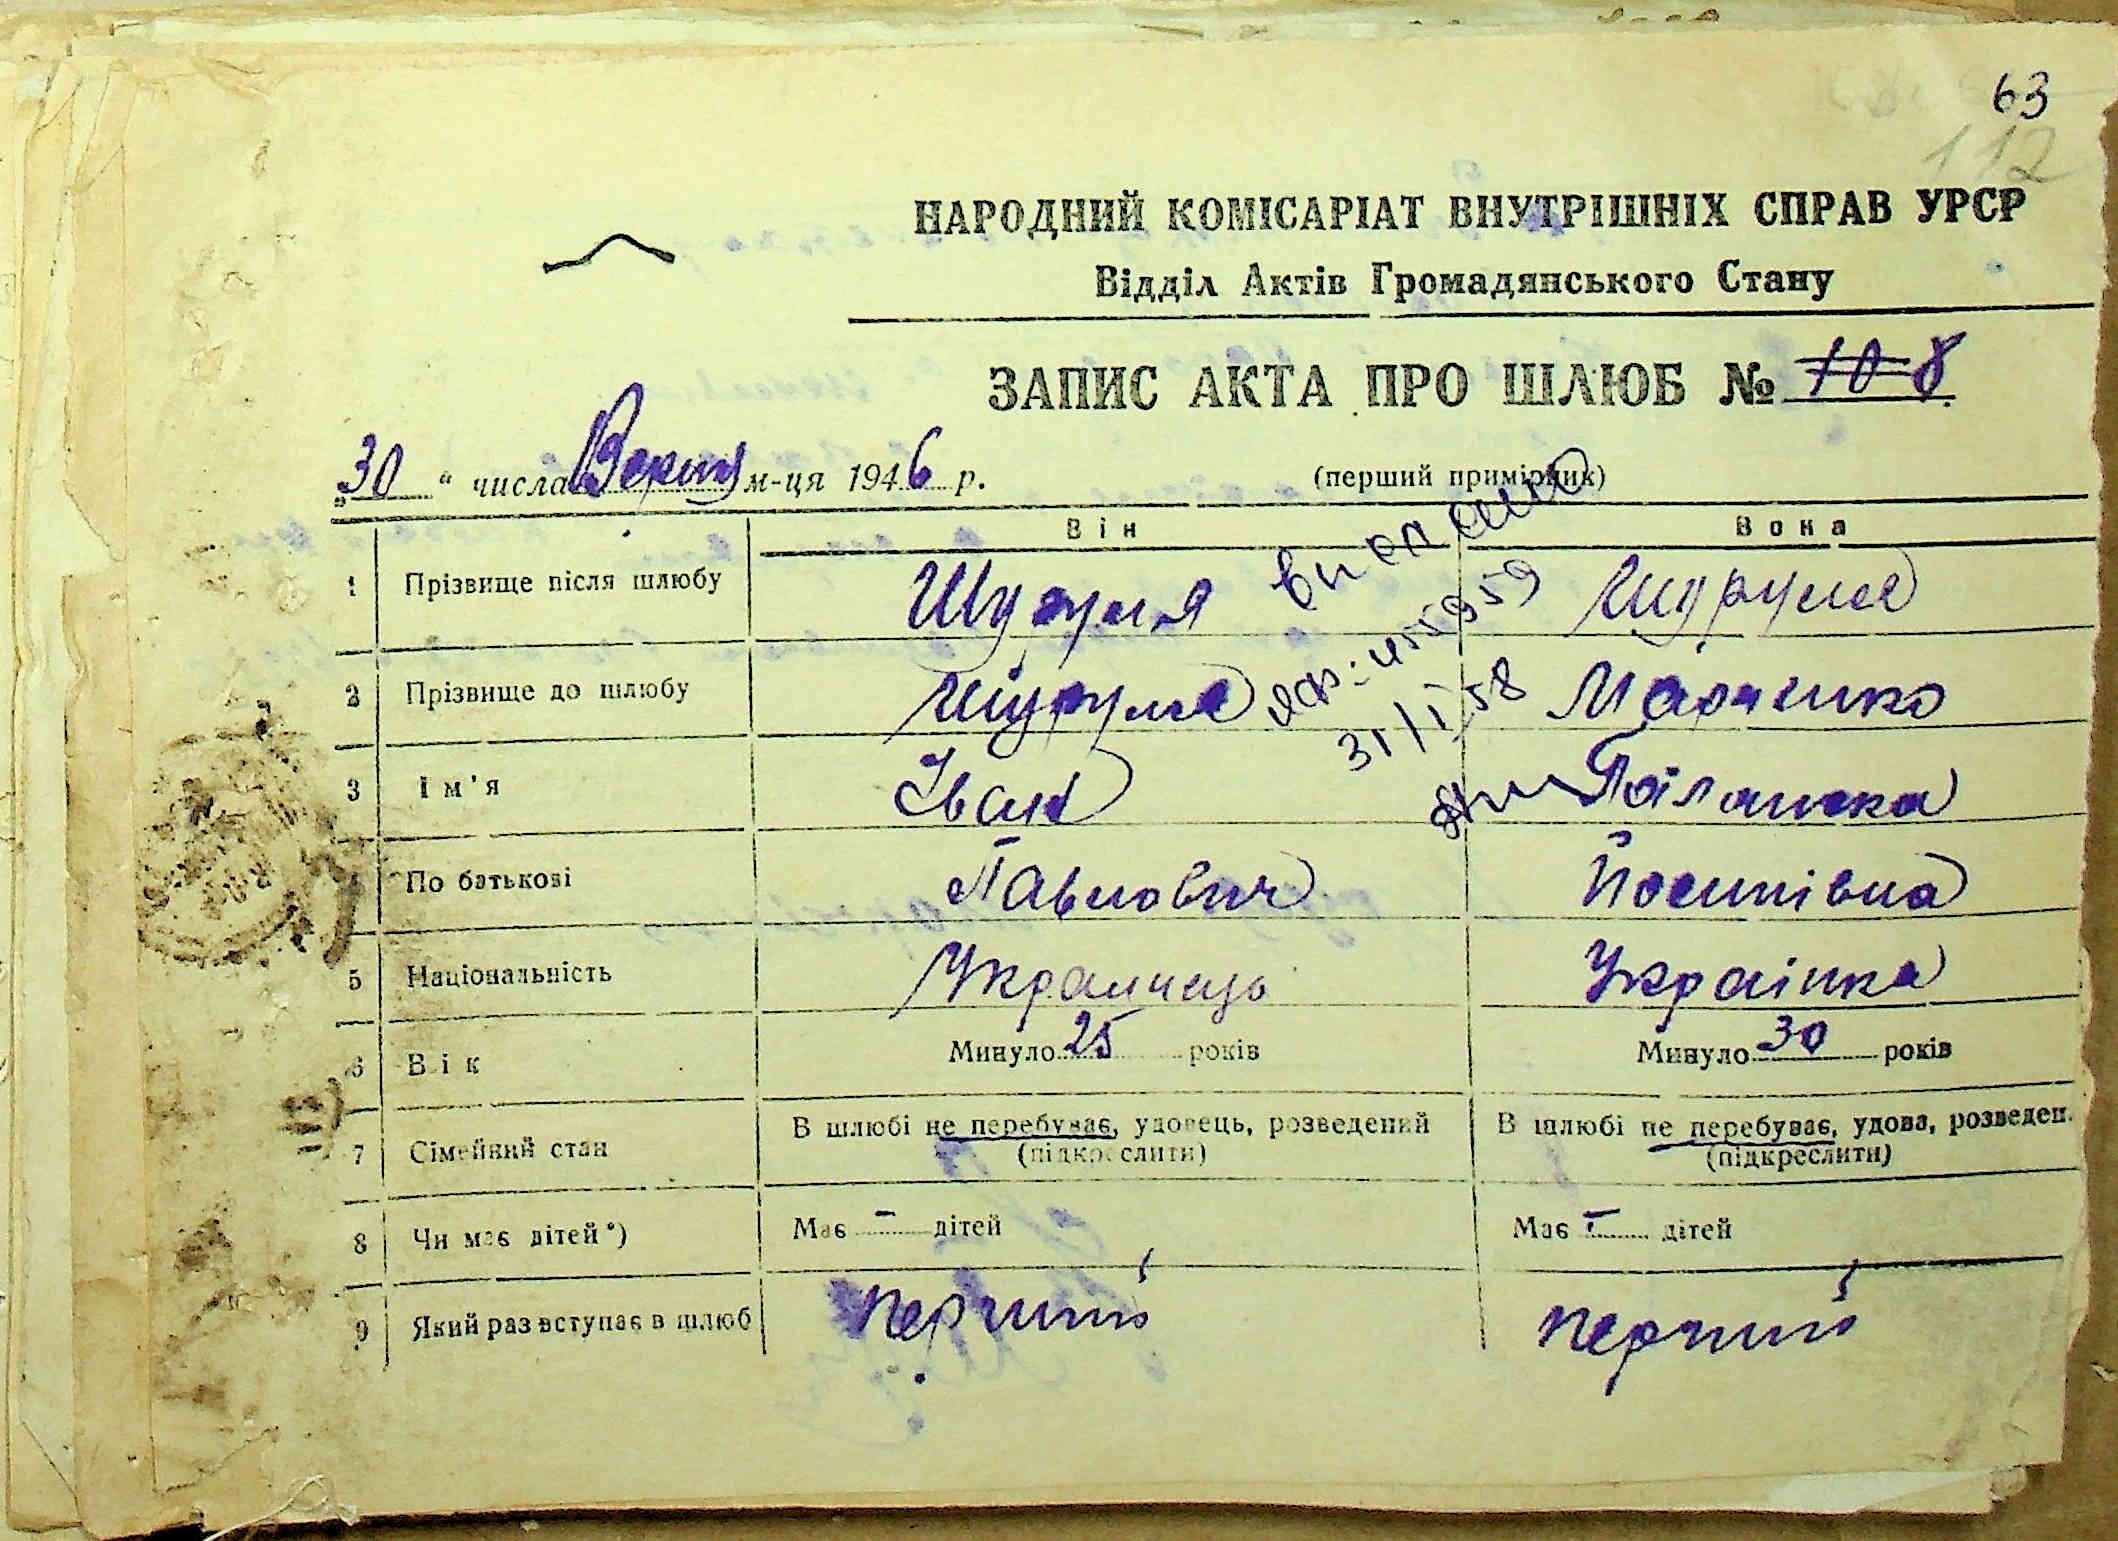 63
112
НАРОДНИЙ КОМІСАРІАТ ВНУТРІШНІХ СПРАВ УРСР
Відділ Актів Громадянського Стану
ЗАПИС АКТА ПРО ШЛЮБ № 10 8
„30" числа м-ця 1946 р. (перший примірник)
Він Вона
1 Прізвище після шлюбу Шуруля Шуруля
2 Прізвище до шлюбу Шуруля Марченко
3 Ім'я Іван Палашка
По батькові Павлович Йосипівна
5 Національність Українець Українка
6 Вік Минуло 25 років Минуло 30 років
7 Сімейний стан В шлюбі не перебуває, удовець, розведений (підкреслити) В шлюбі не перебуває, удова, розведен. (підкреслити)
8 Чи має дітей*) Має – дітей Має – дітей
9 Який раз вступає в шлюб перший перший
31/I 58